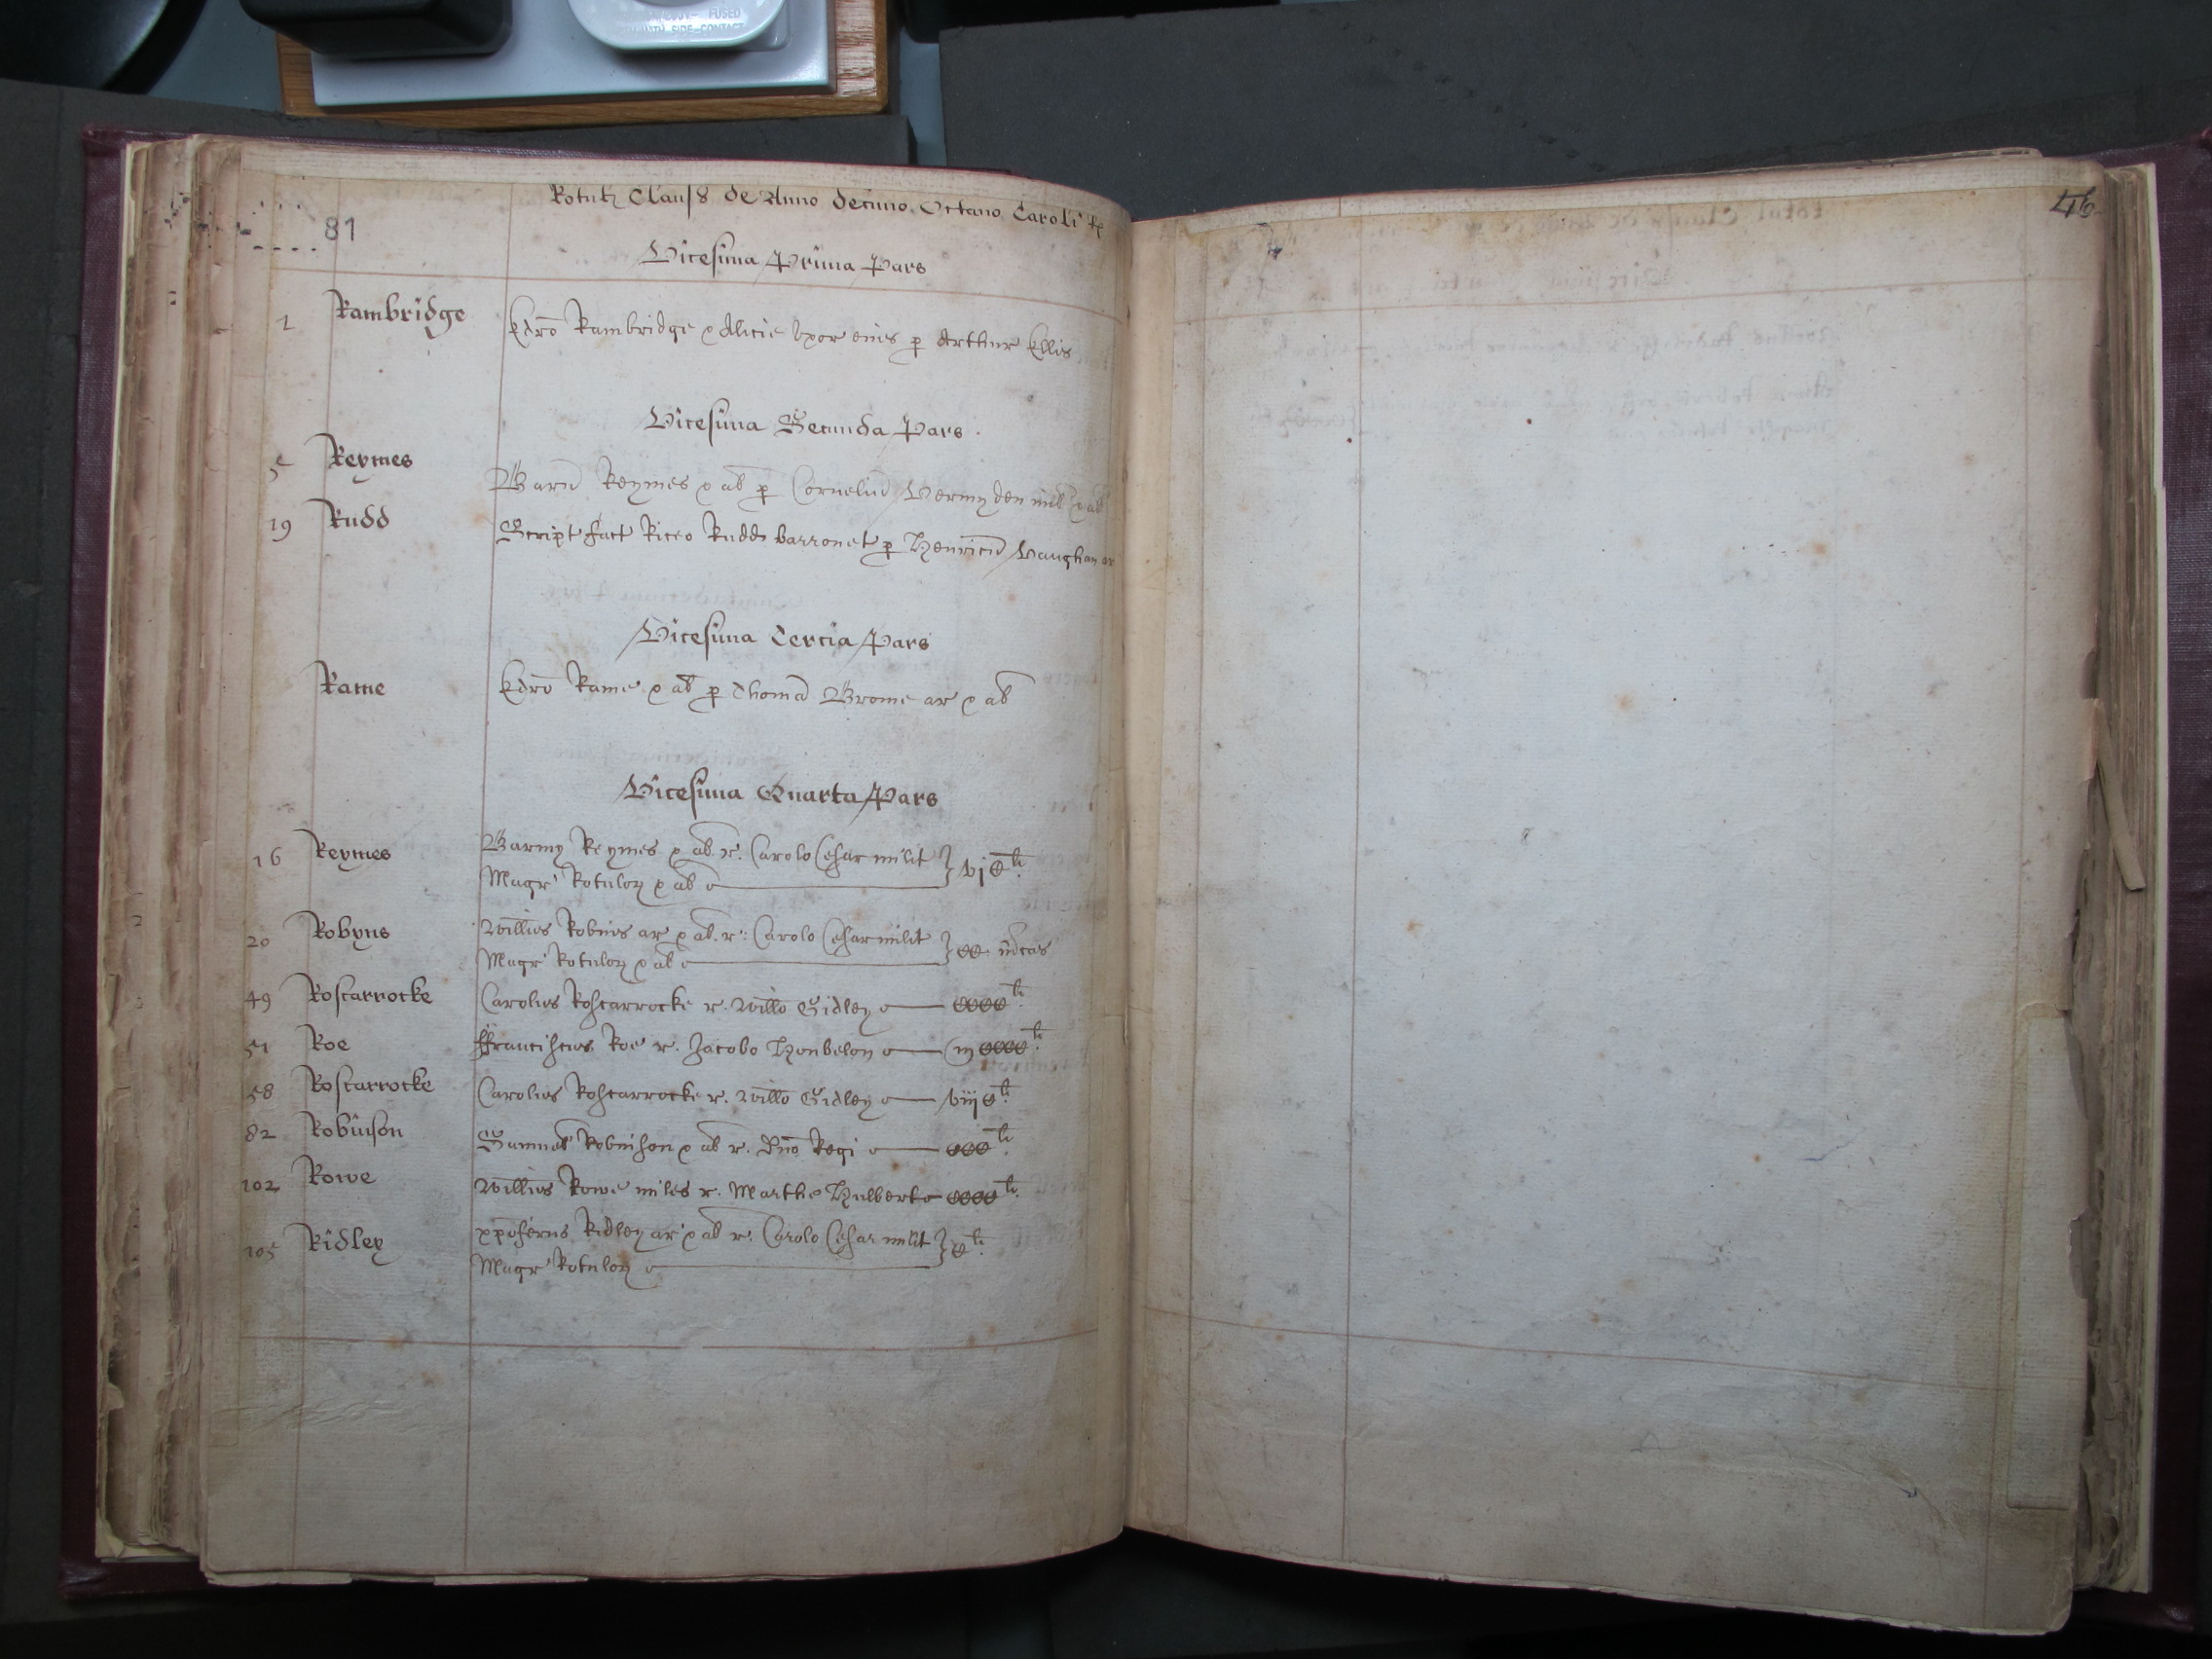 FUSED
WITH SIDE-CONTACT
81
Rotuli Claus de Anno decimo Octavo Caroli R
Vicesima Prima Pars
1 Rambridge Edro Rambridge & Alicie Uxor eius p Arthur Ellis
Vicesima Secunda Pars
5 Reymes Barn Reymes & al p Corneliu Vermyden mil & al
19 Rudd Script fact Riceo Rudd barronet p Henricu Vaughan ar
Vicesima Tercia Pars
Rame Edro Rame & al p Thoma Brome ar & al
Vicesima Quarta Pars
16 Reymes Barny Reymes & al r. Carolo Cesar milit
Magr Rotulor & al vjC li
20 Robyns Willius Robins ar & al r: Carolo Cesar milit
Magr Rotulor & al CC mcas
49 Roscarrocke Carolus Roscarrocke r. Willo Gidley CCCC li
51 Roe ffranciscus Roe r. Jacobo Houbelon m CCCC li
58 Roscarrocke Carolus Roscarrocke r. Willo Gidley viijC li
82 Robinson Samuel Robinson & al r. Dno Regi CCC li
102 Rowe Willius Rowe miles r. Marthe Hulbert CCCC li
105 Ridley xpoferus Ridley ar & al r. Carolo Cesar milit
Magr Rotulor C li